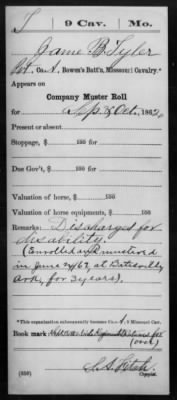 T | 9 Cav. | Mo.
Jame B. Tyler
Pvt., Co. A, Bowen's Batt'n, Missouri Cavalry.*
Appears on
Company Muster Roll
for Sept & Oct., 1862.
Present or absent
Stoppage, $ 100 for
Due Gov't, $ 100 for
Valuation of horse, $ 100
Valuation of horse equipments, $ 100
Remarks: Discharged for
disability.
(Enrolled and mustered
in June 24/62, at Batesville
Ark, for 3 years).
*This organization subsequently became Co. A, 9 Missouri Cav.
Book mark:
(over)
(356)
Copyist.